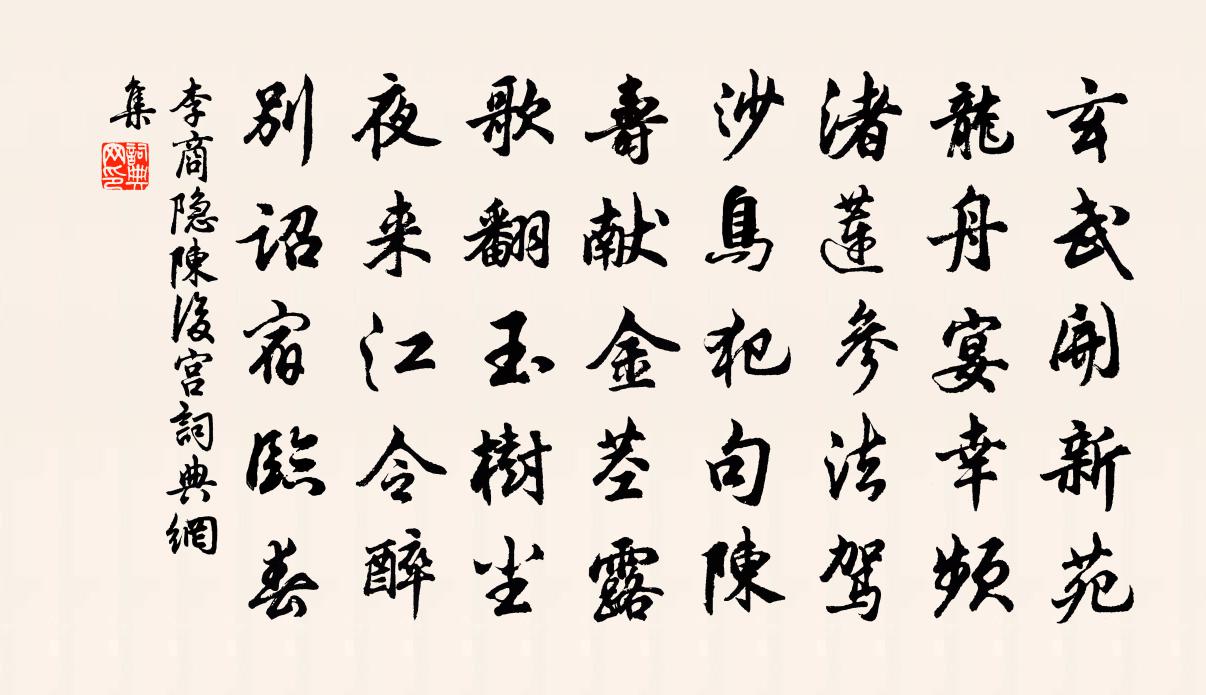 玄武開新苑
龍舟宴幸頻
渚蓮參法駕
沙鳥犯句陳
壽献金茎露
歌翻玉樹尘
夜来江令醉
别诏宿臨春
李商隐陳後宫詞典網
集
詞典
网印